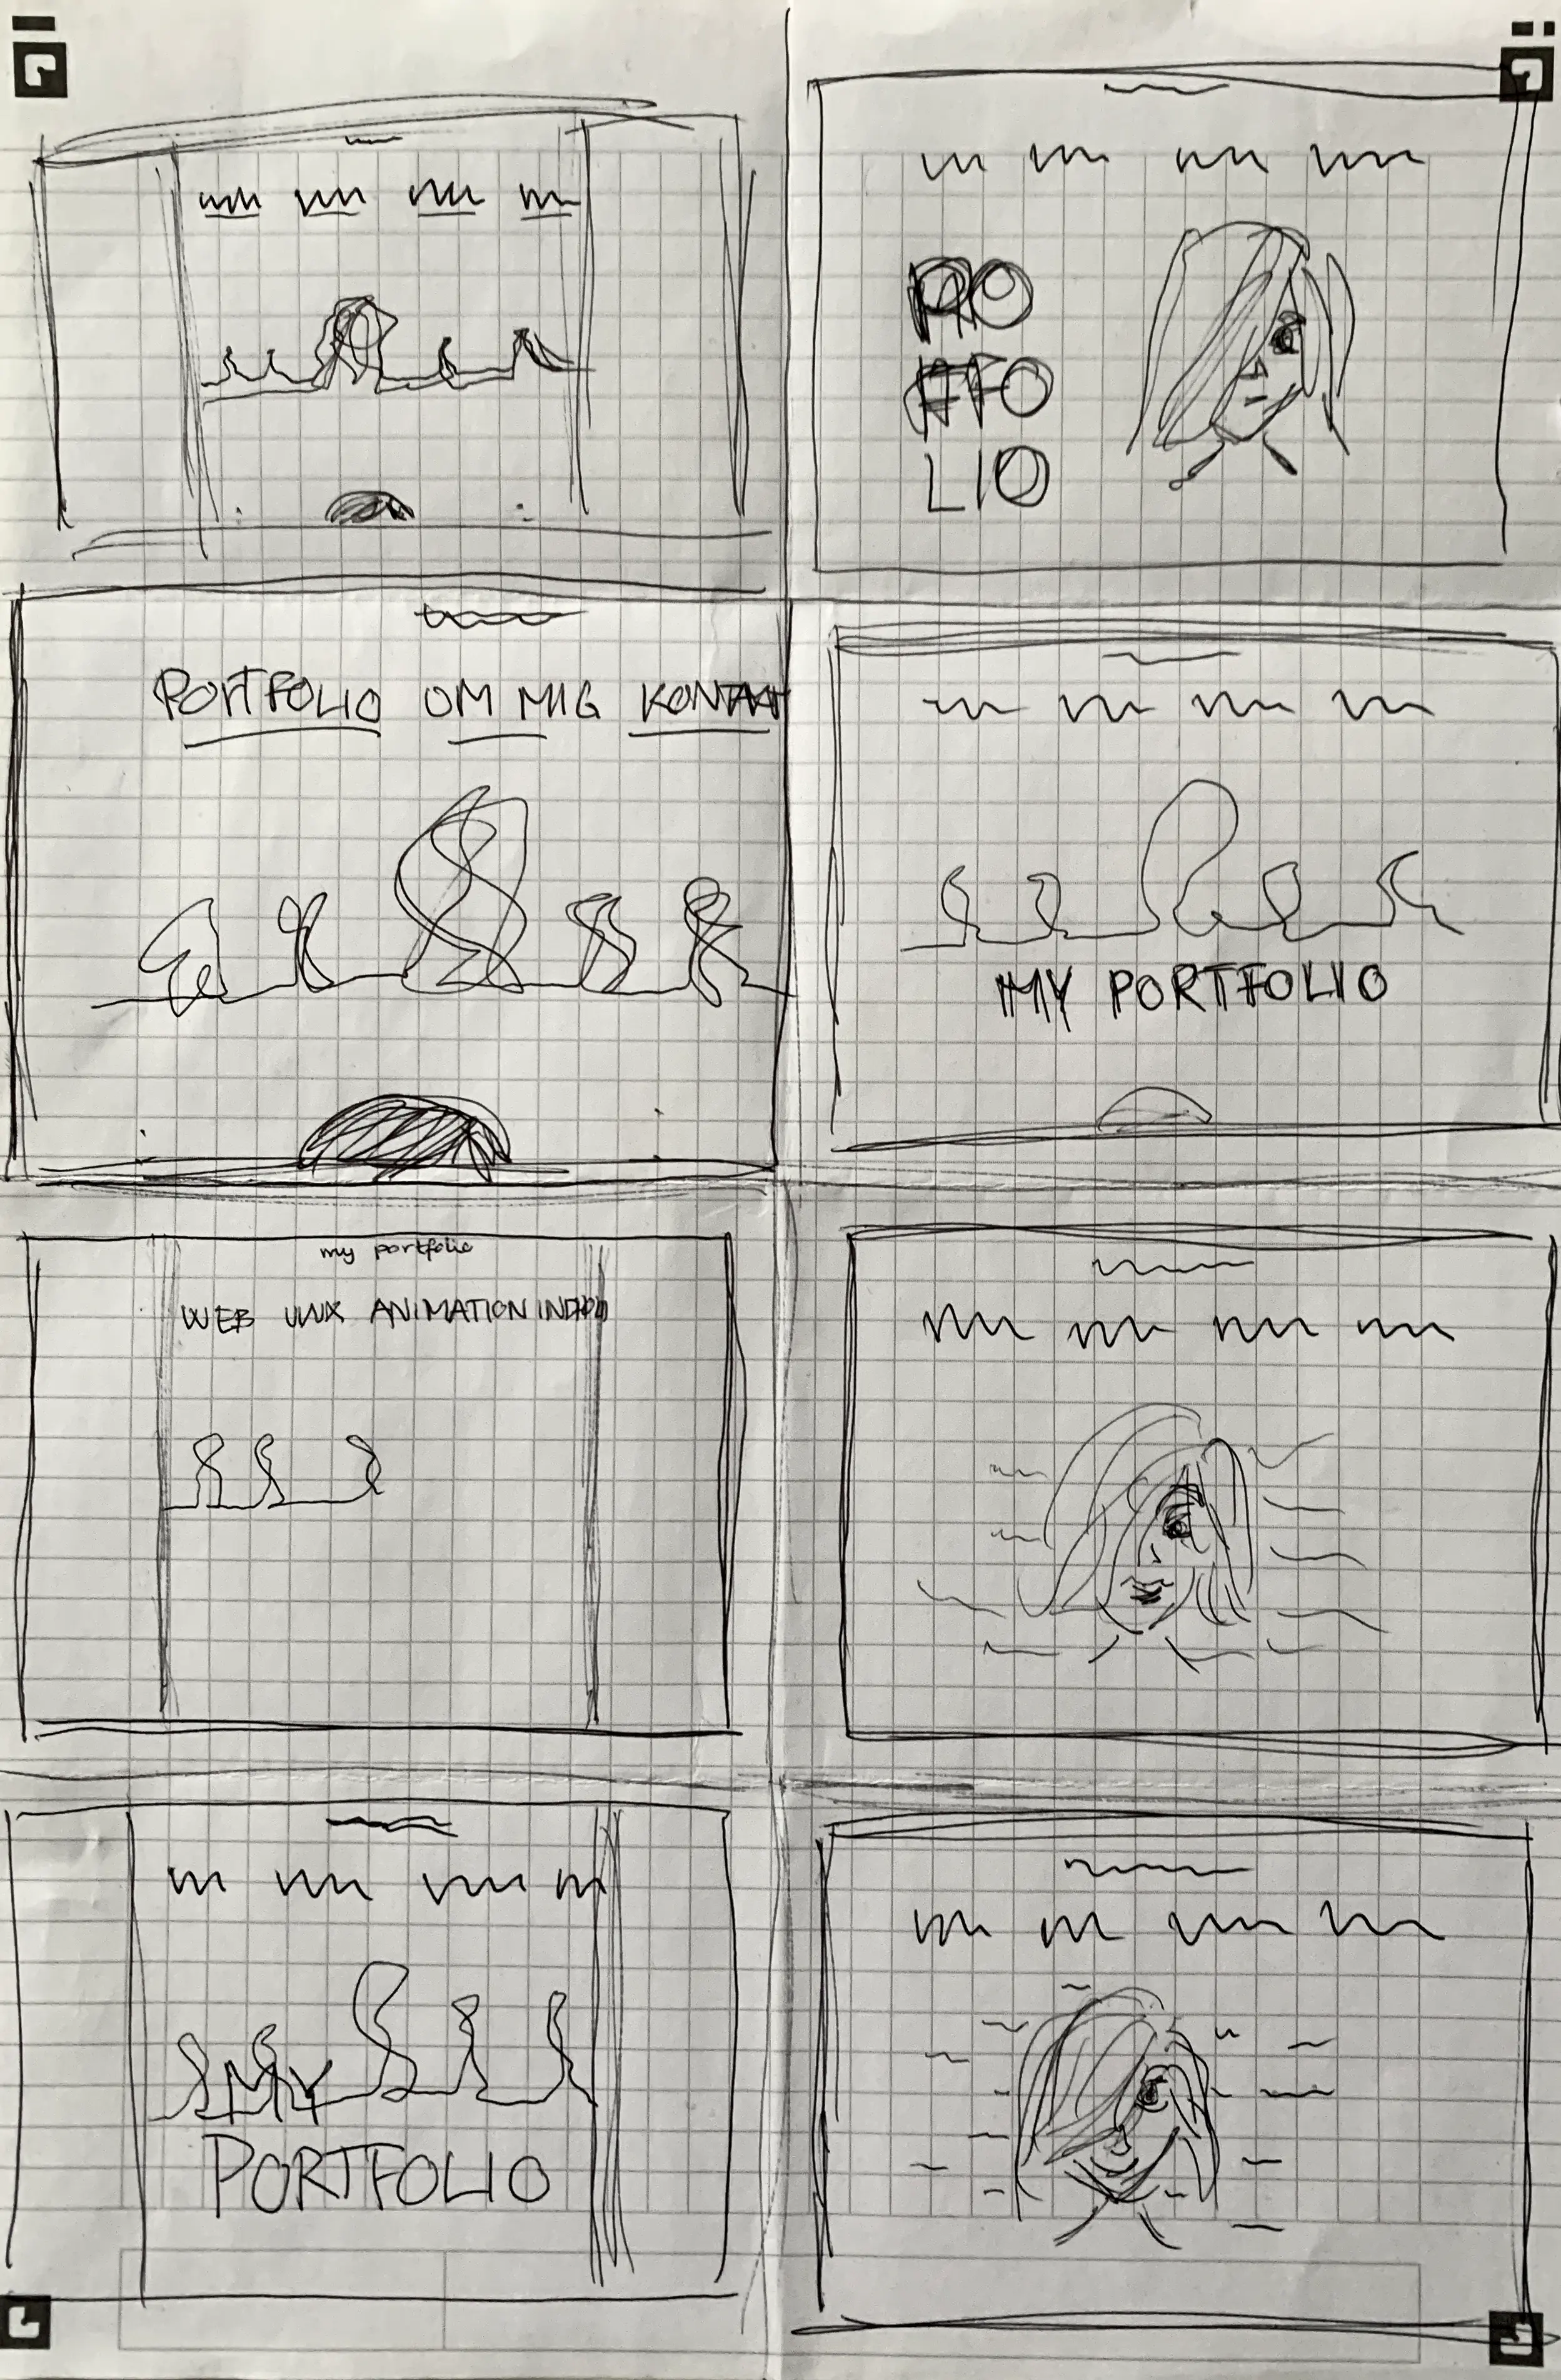 PO
RTFO
LIO
PORTFOLIO OM MIG KONTAKT
MY PORTFOLIO
my portfolio
WEB UI/UX ANIMATION
MY
PORTFOLIO